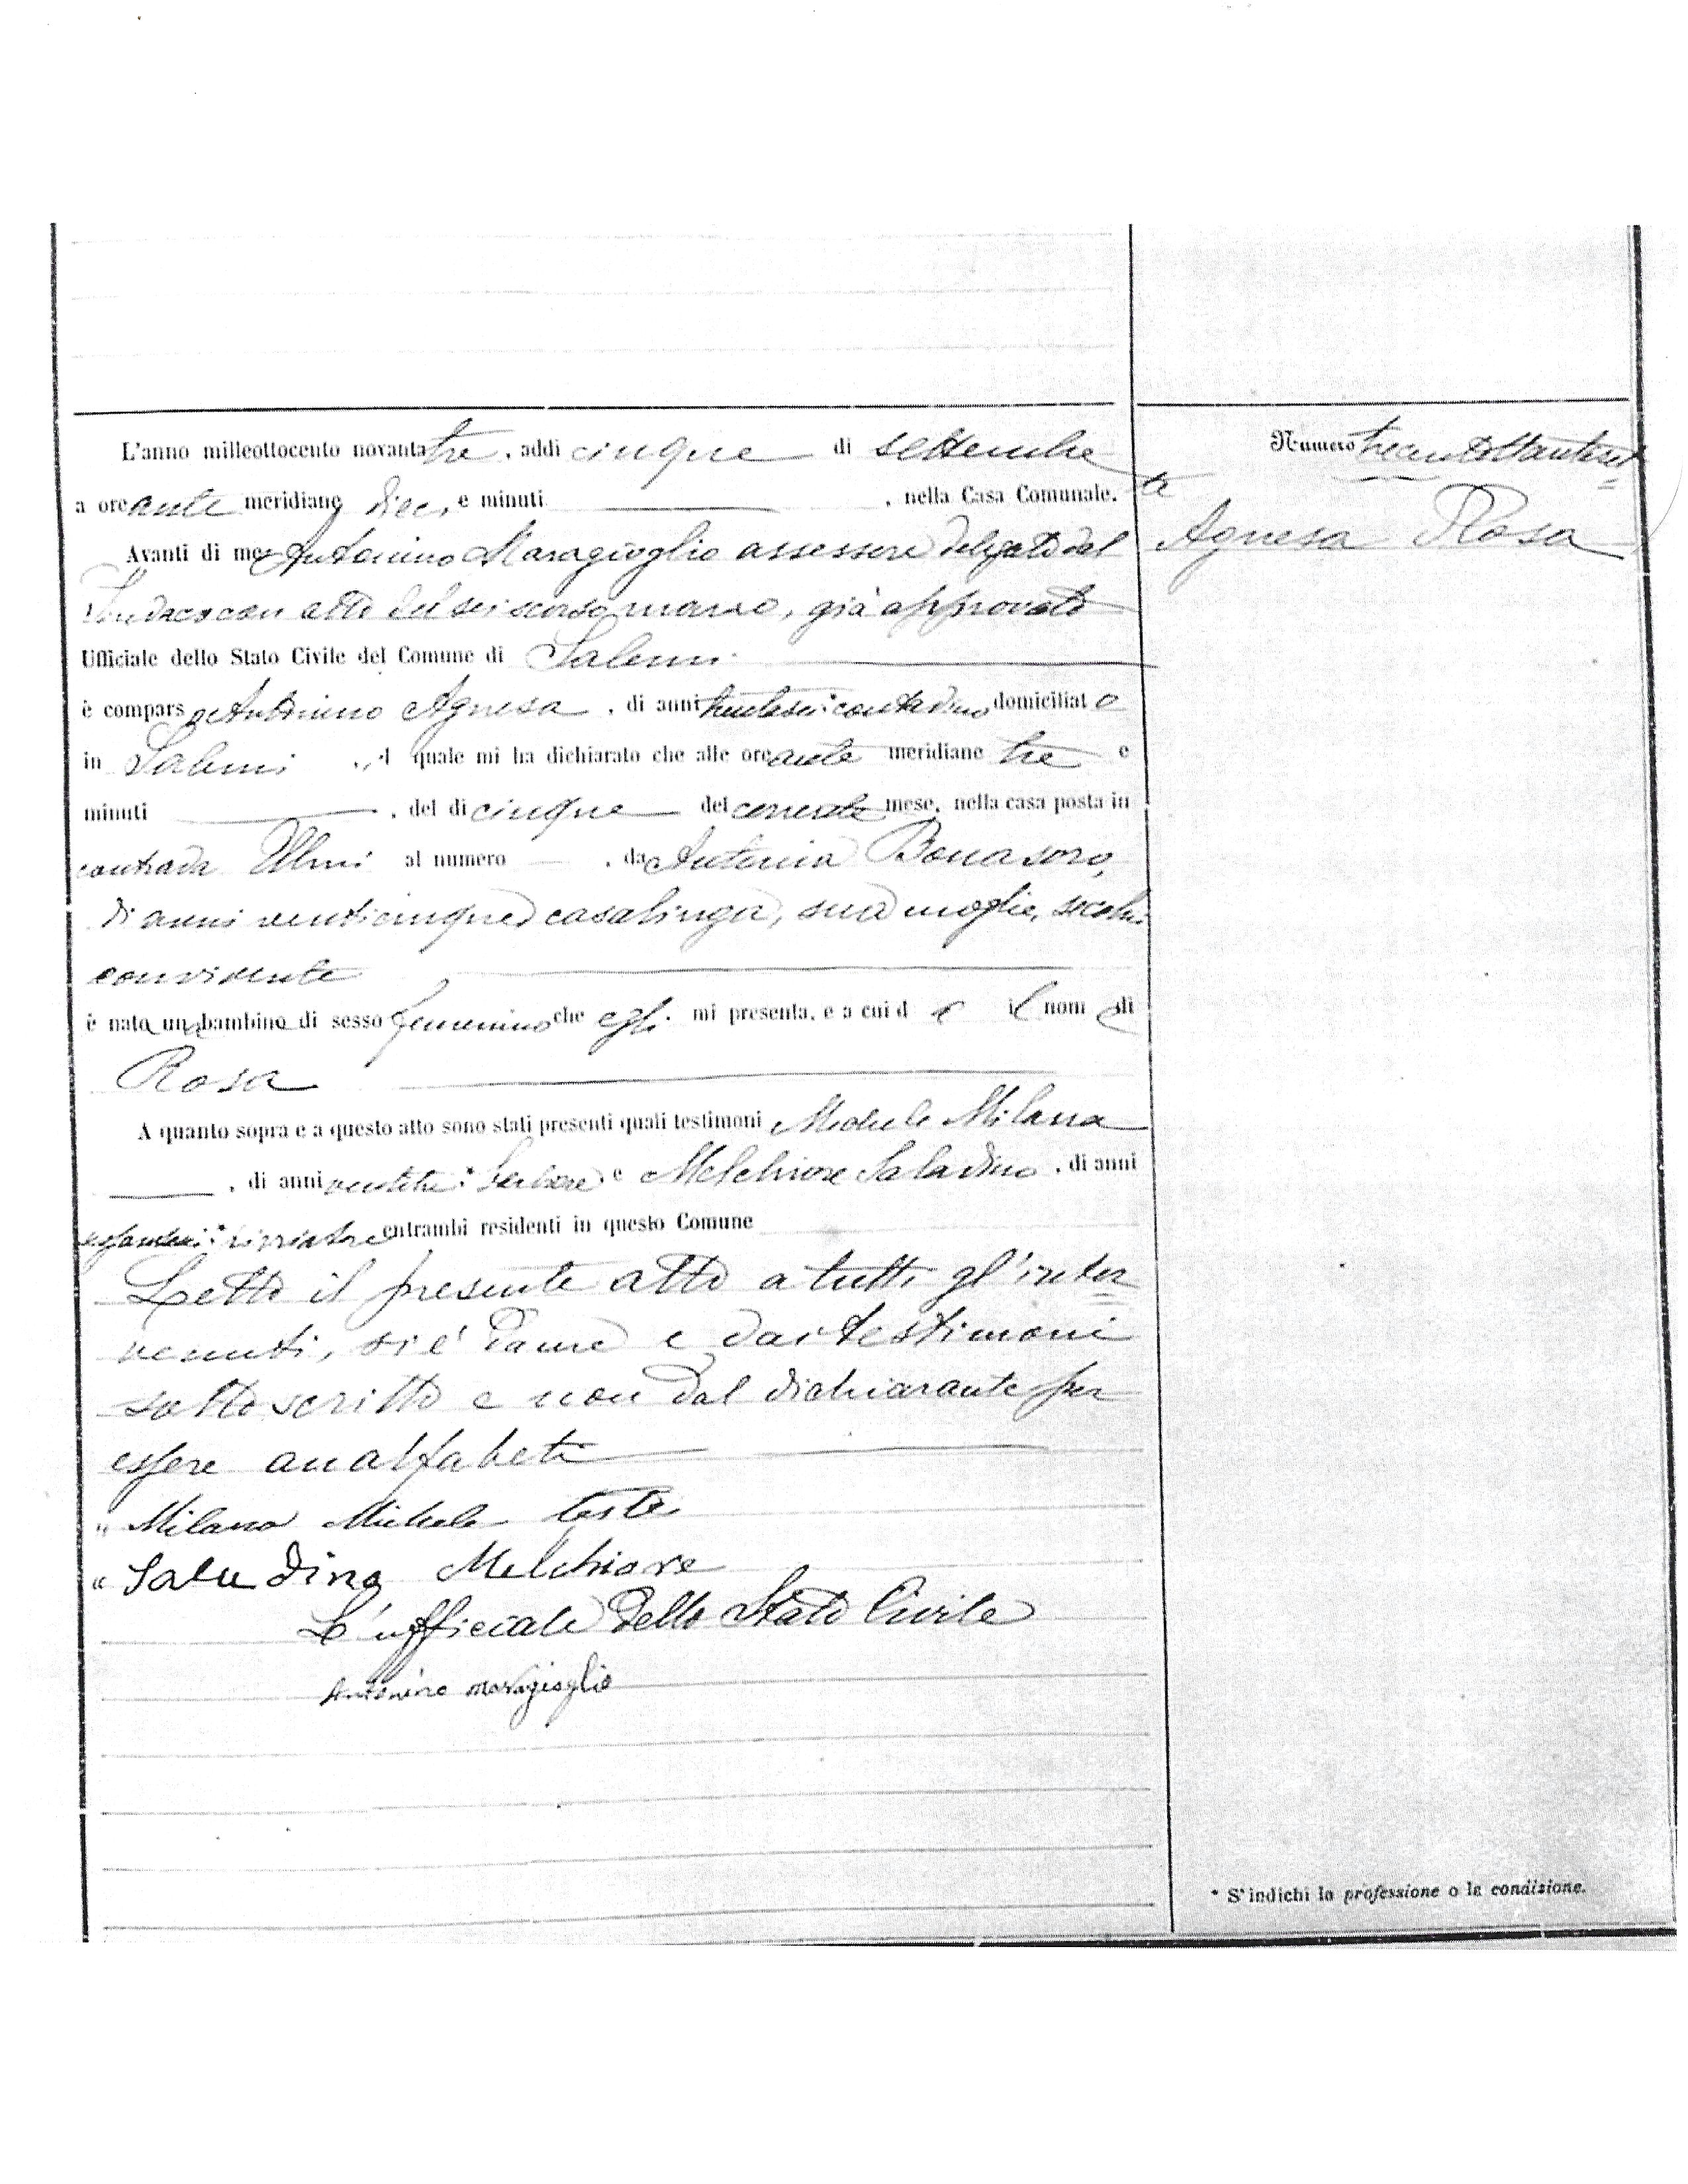 L'anno milleottocento novantatre, addi cinque di settembre
a ore ante meridiane dieci, e minuti , nella Casa Comunale.
Avanti di me Antonino Maragioglio assessore delegato dal
Sindaco con atto del sei scorso marzo, già approvato
Ufficiale dello Stato Civile del Comune di Salemi
è comparso Antonino Agnesa, di anni contadino domiciliato
in Salemi, il quale mi ha dichiarato che alle ore ante meridiane tre e
minuti , del dì cinque del corrente mese, nella casa posta in
contrada Ulmi al numero , da Antonia Bonasoro,
di anni venticinque casalinga, sua moglie, seco lui
convivente
è nato una bambina di sesso femminino che egli mi presenta, e a cui dà il nome di
Rosa
A quanto sopra e a questo atto sono stati presenti quali testimoni Michele Milana
, di anni e Melchiore Saladino, di anni
entrambi residenti in questo Comune
Letto il presente atto a tutti gl'inter=
venuti, si è da me e dai testimoni
sottoscritto e non dal dichiarante per
essere analfabeta
" Milana Michele teste
" Saladino Melchiore
L'ufficiale dello Stato Civile
Antonino Maragioglio
Numero trecentottantaset=
te
Agnesa Rosa
* S'indichi la professione o la condizione.